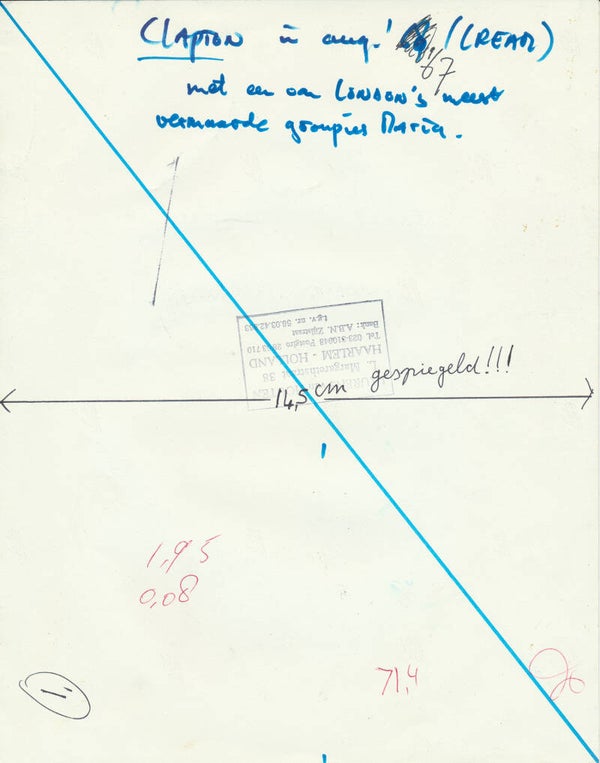 CLAPTON in aug.! '67 (CREAM)
met een van LONDON's meest
vermaarde groupies Maria.
HAARLEM - HOLLAND
Tel. 023-310048 Postgiro
Bank: A.B.N. Zijlstraat
t.g.v. nr.
14,5 cm gespiegeld!!!
1,95
0,08
71,4